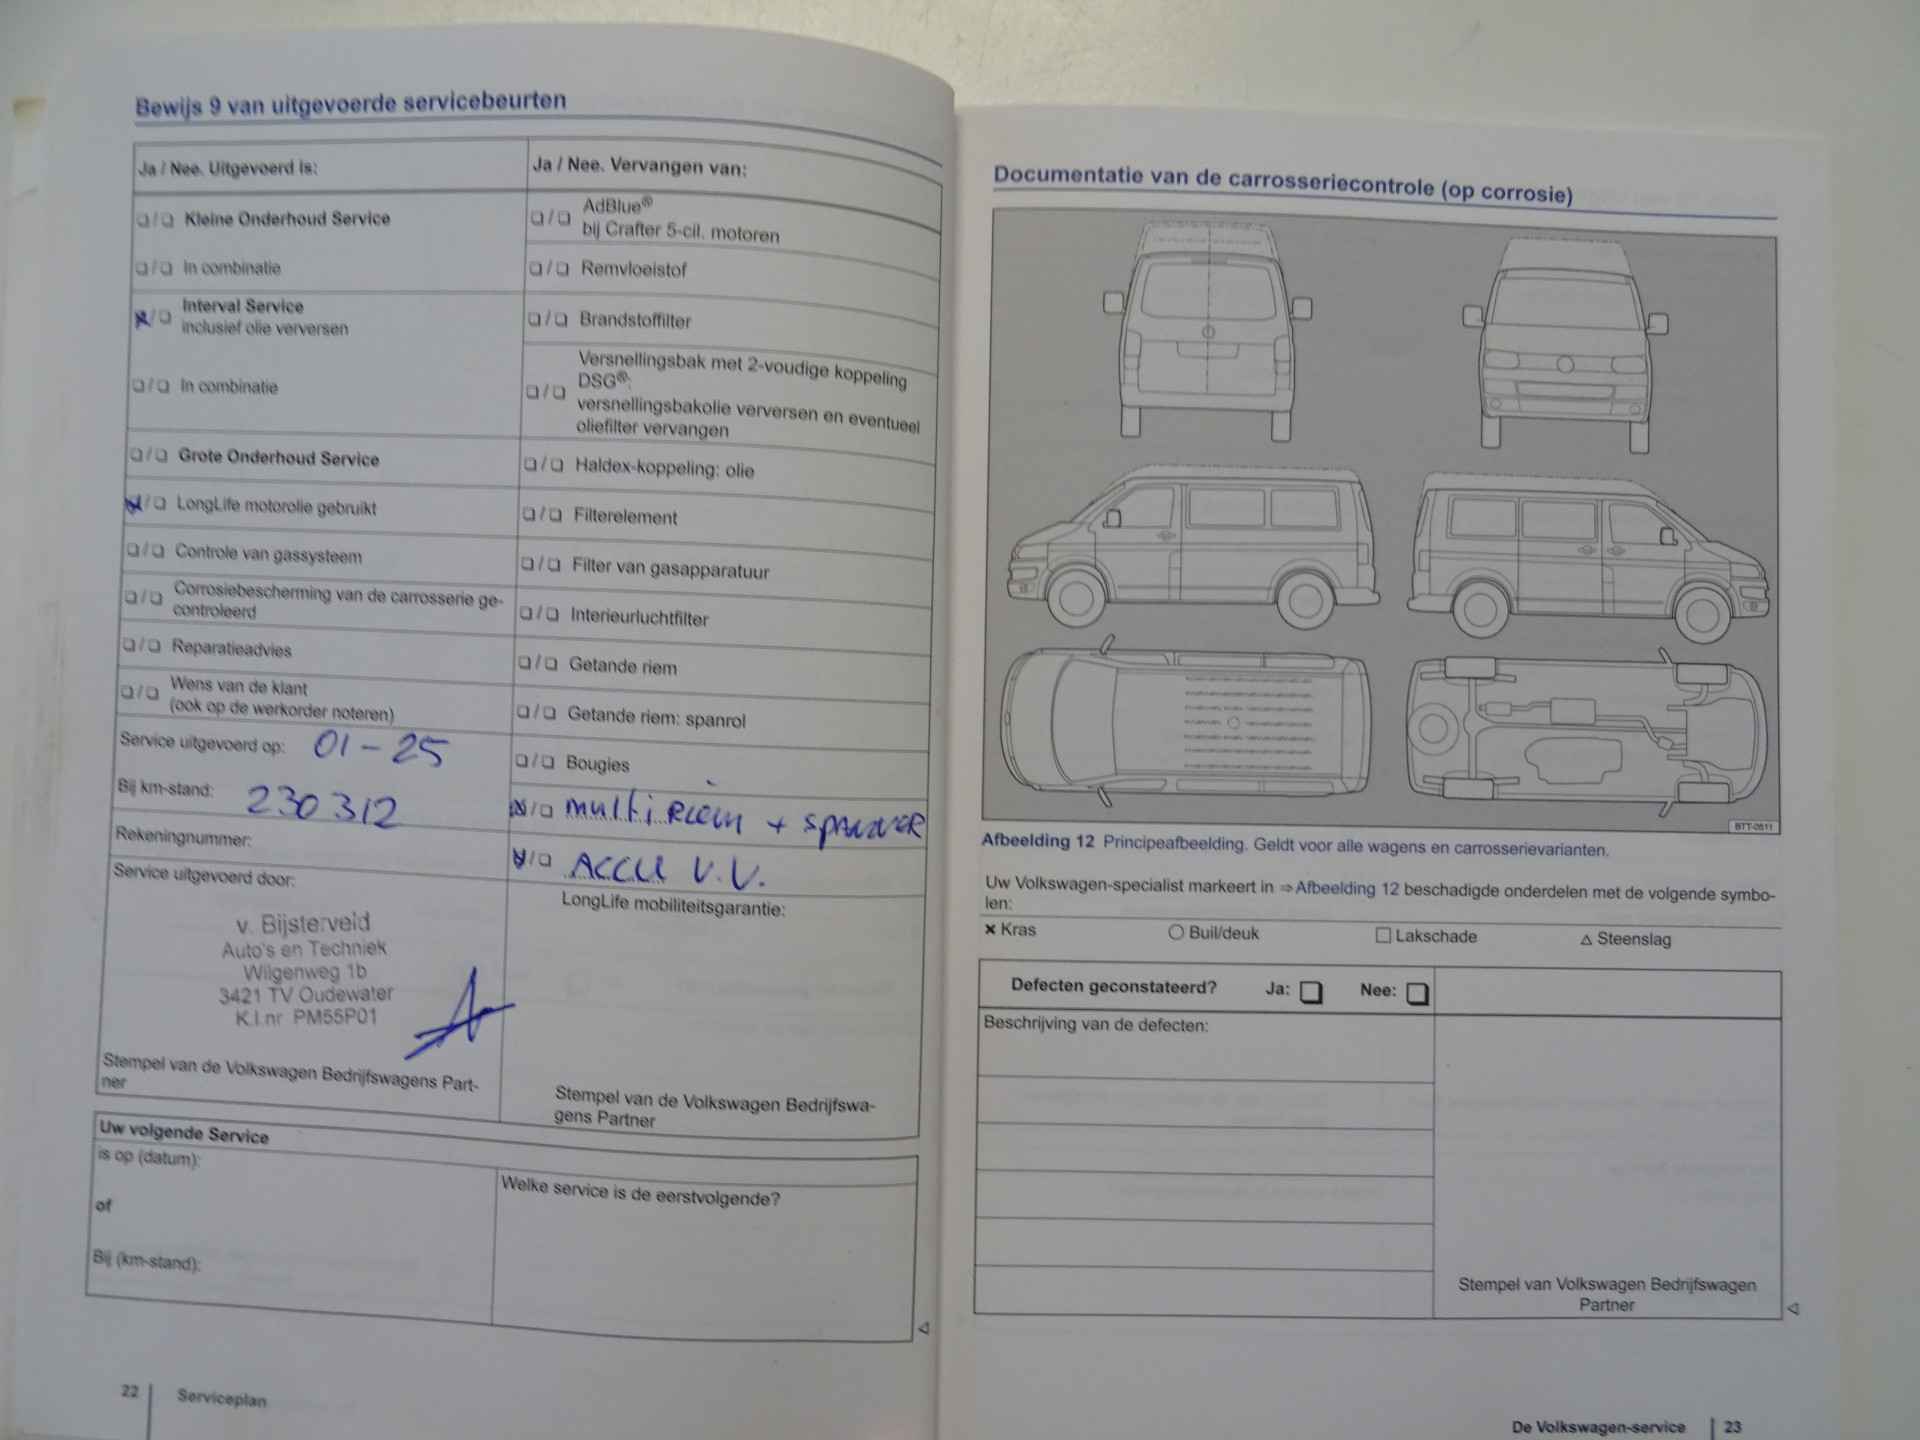 Bewijs 9 van uitgevoerde servicebeurten
Ja / Nee. Uitgevoerd is:
Kleine Onderhoud Service
In combinatie
Interval Service
inclusief olie verversen
In combinatie
Grote Onderhoud Service
LongLife motorolie gebruikt
Controle van gassysteem
Corrosiebescherming van de carrosserie ge-
controleerd
Reparatieadvies
Wens van de klant
(ook op de werkorder noteren)
Service uitgevoerd op: 01-25
Bij km-stand: 230312
Rekeningnummer:
Service uitgevoerd door:
v. Bijsterveld
Auto's en Techniek
Wilgenweg 1b
3421 TV Oudewater
K.I.nr PM55P01
Stempel van de Volkswagen Bedrijfswagens Part-
ner
Ja / Nee. Vervangen van:
AdBlue®
bij Crafter 5-cil. motoren
Remvloeistof
Brandstoffilter
Versnellingsbak met 2-voudige koppeling
DSG®:
versnellingsbakolie verversen en eventueel
oliefilter vervangen
Haldex-koppeling: olie
Filterelement
Filter van gasapparatuur
Interieurluchtfilter
Getande riem
Getande riem: spanrol
Bougies
multi riem + spanner
ACCU V.V.
LongLife mobiliteitsgarantie:
Stempel van de Volkswagen Bedrijfswa-
gens Partner
Uw volgende Service
is op (datum):
of
Bij (km-stand):
Welke service is de eerstvolgende?
22 Serviceplan
Documentatie van de carrosseriecontrole (op corrosie)
BTT-0511
Afbeelding 12 Principeafbeelding. Geldt voor alle wagens en carrosserievarianten.
Uw Volkswagen-specialist markeert in ⇒ Afbeelding 12 beschadigde onderdelen met de volgende symbo-
len:
× Kras ○ Buil/deuk □ Lakschade △ Steenslag
Defecten geconstateerd? Ja: Nee:
Beschrijving van de defecten:
Stempel van Volkswagen Bedrijfswagen
Partner
De Volkswagen-service 23